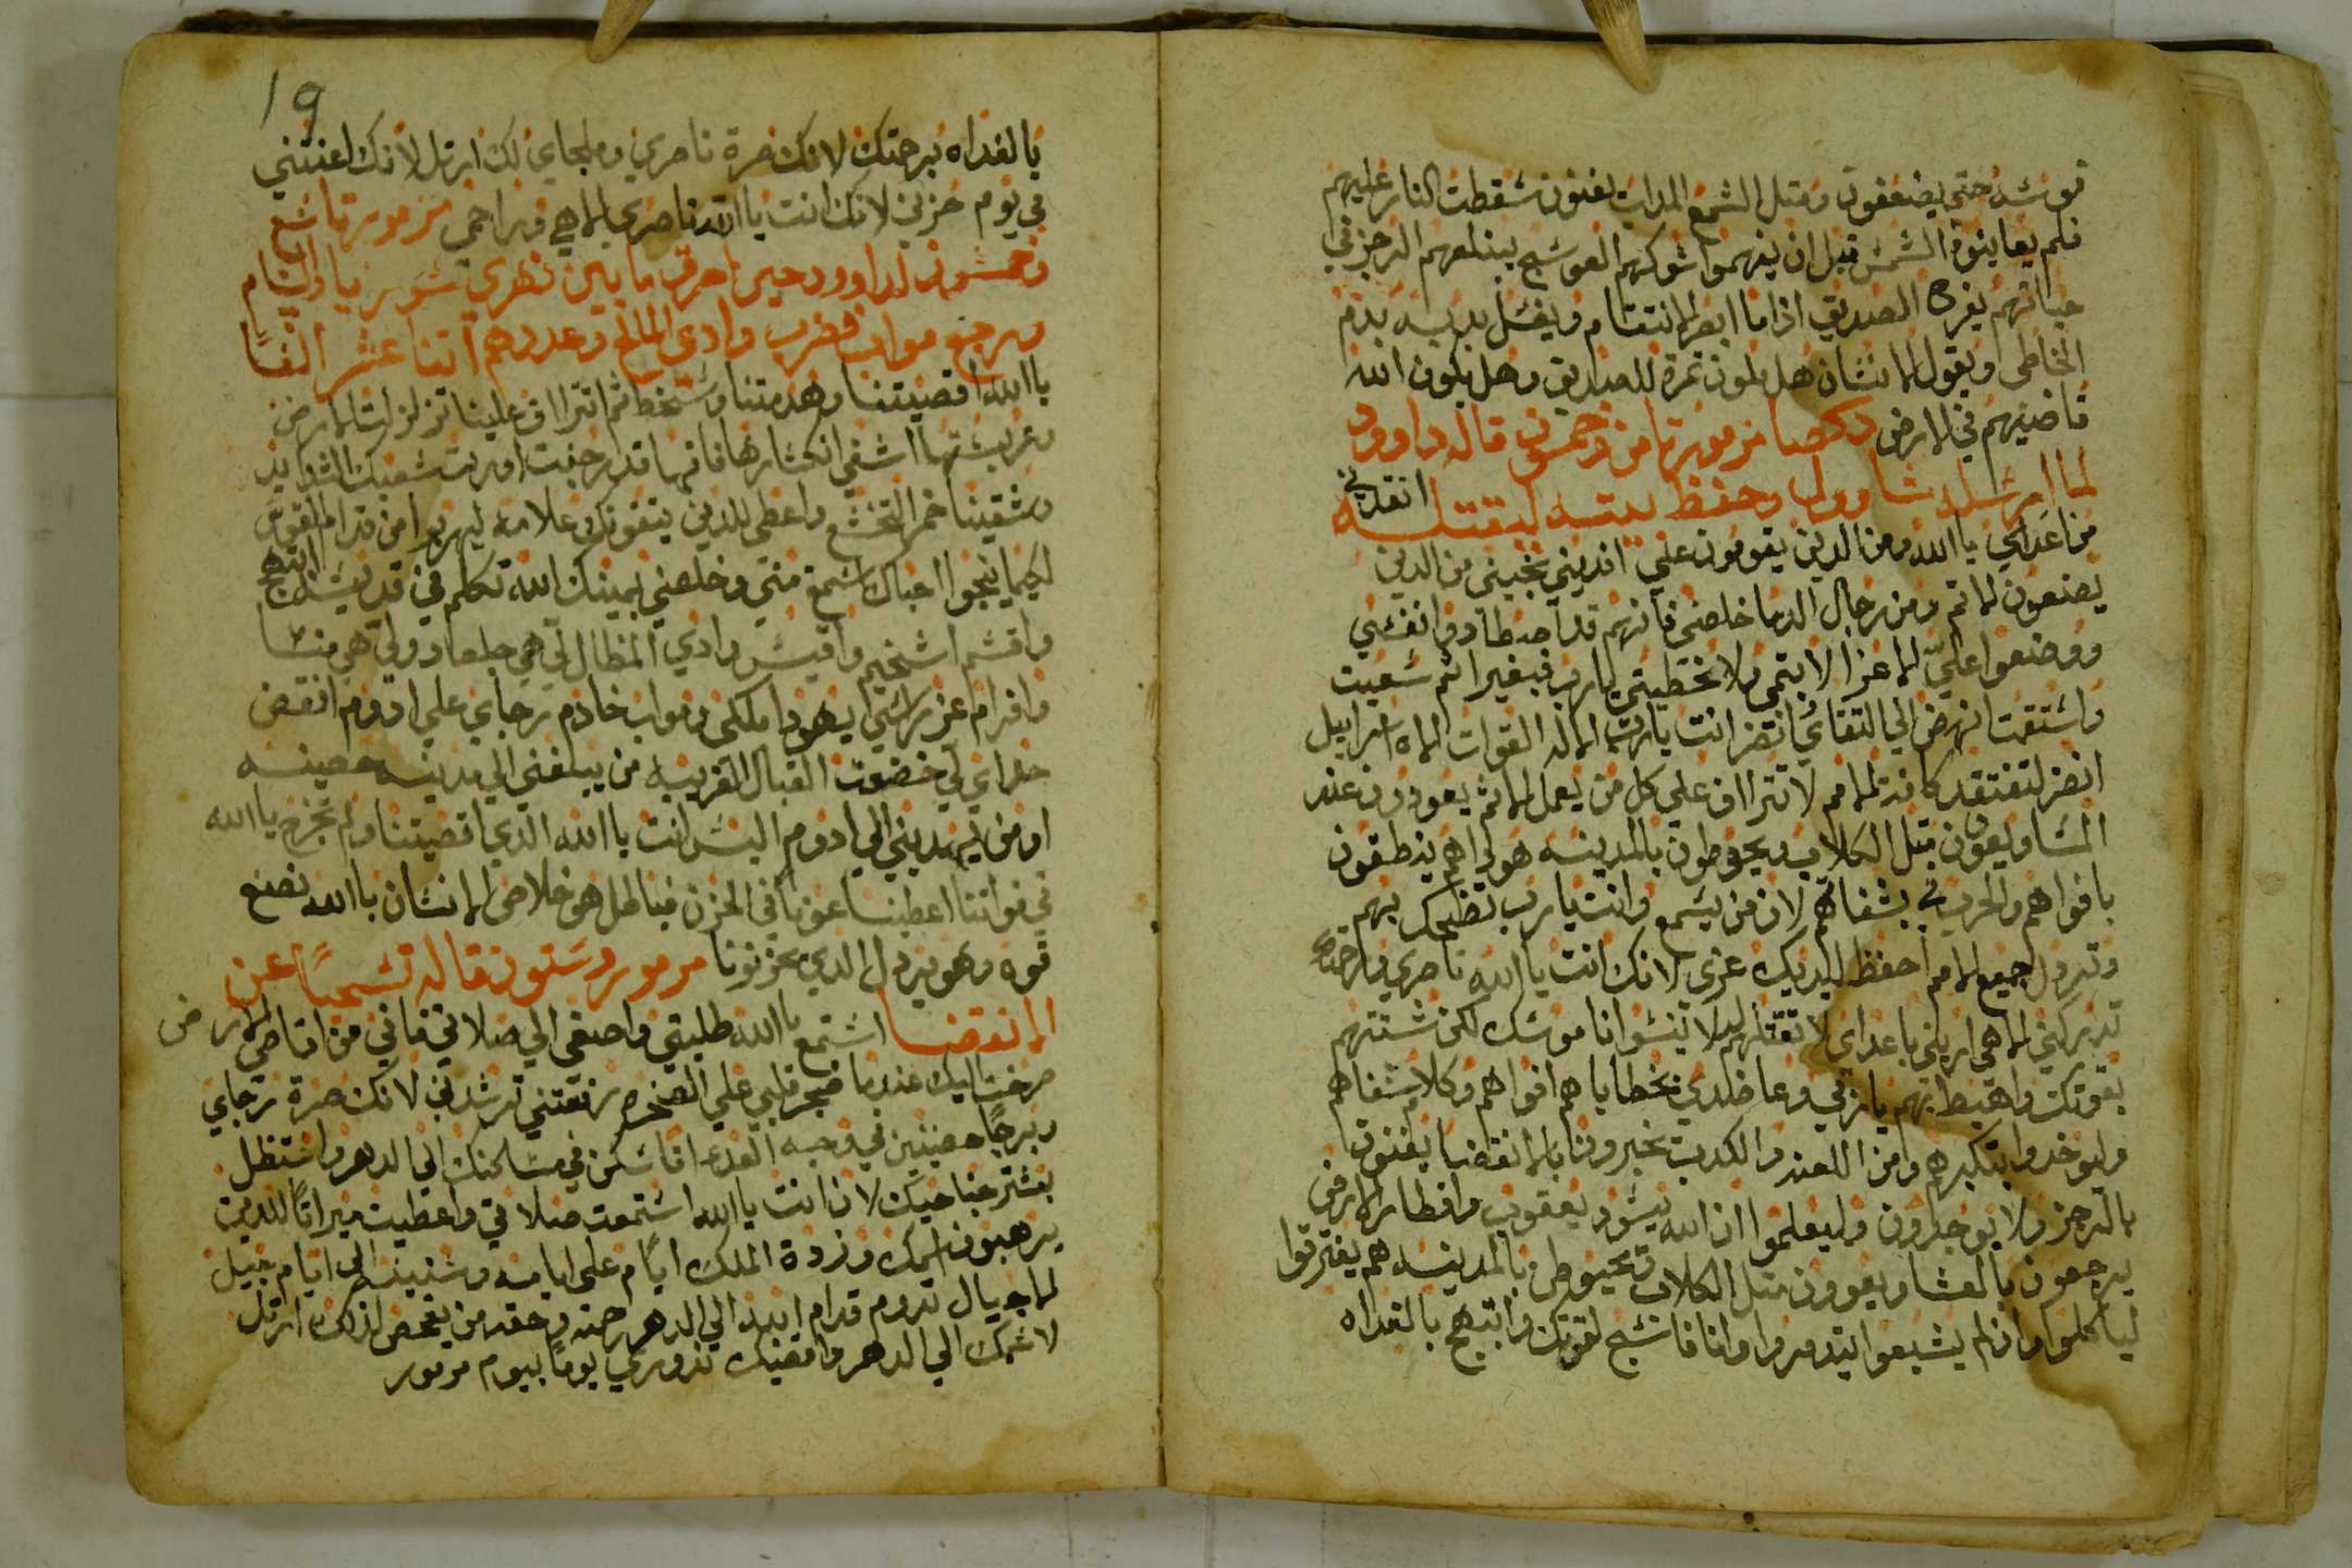 قوسه حتى يضعفون ومتل الشمع المداب يفنون سقطت النار عليهم
فلم يعاينوا الشمس قبل ان يفهموا شوكهم العوسج يبتلعهم الرجز في
حياتهم يفرح الصديق اذا ما ابصر الانتقام ويغسل يديه بدم
الخاطي ويقول الانسان هل تكون تمرة للصديق وهل يكون الله
قاضيهم في الارض مزمور تامن وخمسون قاله داوود
لما ارسل شاوول وحفظ بيته ليقتله انقدني
من اعداي يا الله ومن الدين يقومون علي افديني نجيني من الدين
يصنعون الاتم ومن رجال الدما خلصني فانهم قد اصطادوا نفسي
ووضعوا عليّ الاعزا لا بتمي ولا بخطيتي يارب فبغير اتم سعيت
واستقمت انهض الي التقائي انضر انت يارب الاله القوات اله اسراييل
انضر لتفتقد كافة الامم لا تتراف علي كل من يعمل الاتم يعودون عند
المسا ويعوون متل الكلاب ويحوطون بالمدينه هودا هم ينطقون
بافواههم والحربه في شفاههم لان من يسمع وانت يارب تضحك بهم
وتردل جميع الامم احفظ اليك عزي لانك انت يا الله ناصري
تدركني الاهي اريني باعداي لا تقتلهم ليلا ينسوا ناموسك لكن شتتهم
بقوتك واهبط بهم يارب وعاضدي بخطايا هم افواههم وكلام شفاههم
وليوخدوا بتكبرهم ومن اللعنه والكدب يخبرون بالانقضا يفنون
بالرجز ولا يوجدون وليعلموا ان الله يسود يعقوب واقطار الارض
يرجعون بالعشا ويعوون متل الكلاب وتحيوطن بالمدينه هم يفترقوا
لياكلوا وان لم يشبعوا يتدمروا وانا فاسبح لقوتك وابتهج بالغداه
19
بالغداه برحمتك لانك صرة ناصري وملجاي لك ارتل لانك اعنتني
في يوم حزني لانك انت يا الله ناصري الاهي وراحمي مزمور تاسع
وخمسون لداوود حين احرق ما بين نهري سوريا والشام
ورجع مواب فضرب وادي المالح وعددهم اتنا عشر الفًا
يا الله اقصيتنا وهدمتنا وسخط تم اتراف علينا تزلزلت الارض
اشفي انكسارها فانها قد رجفت اوريت شعبك الشدايد
وسقيتنا خمر التخشع واعطي للدين يتقونك علامه ليهربوا من قدام القوس
لكيما ينجوا احباك استمع مني وخلصني بيمينك الله تكلم في قديسه ابتهج
واقسم اشخيم واقيس وادي المظال لي هي جلعاد ولي هي منسا
وافرام عز راسي يهودا ملكي ومواب خادم رجاي علي ادوم انفض
حداي لي خضعت القبايل الغريبه من يبلغني الي مدينه حصينه
او من يهديني الي ادوم اليس انت يا الله الدي اقصيتنا ولم تخرج يا الله
في قواتنا اعطينا عونًا في الحزن فباطل هو خلاص الانسان يا الله نصنع
قوه وهو يردل الدي يحزنونا مزمور وستون قاله تسبحًا عن
الانقضا استمع يا الله طلبتي واصغي الي صلاتي فاني من اقاصي الارض
صرخت اليك عندما ضجر قلبي علي الصخره رفعتني ترشدني لانك صرة رجاي
وبرجًا حصينين في وجه العدو اناسكن في مسكنك الي الدهر واستظل
بستر جناحيك لان انت يا الله استمعت صلاتي واعطيت ميراتًا للدين
يرهبون اسمك وزدة الملك ايام علي ايامه وسنينه الي ايام جيل
الاجيال تدوم قدام ابد الي الدهر رحمته وحقه من يفحص لدلك ارتل
لاسمك الي الدهر واقضيك ندوري يومًا بيوم مزمور